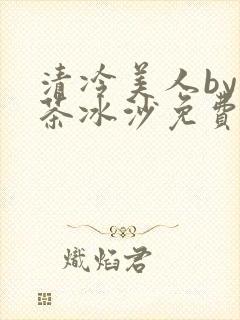 清冷美人by
茶冰沙免費
熾焰君